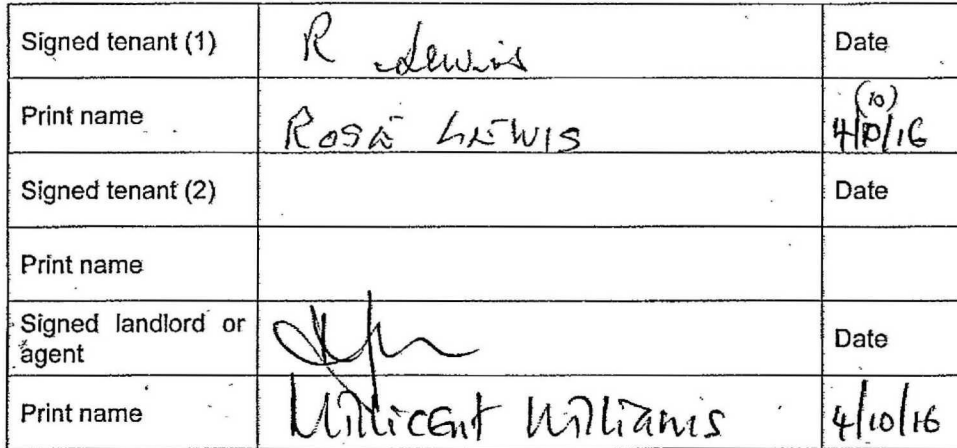 Signed tenant (1) R Lewis Date
Print name ROSE LEWIS (10) 4/10/16
Signed tenant (2) Date
Print name
Signed landlord or
agent Date
Print name Millicent Williams 4/10/16